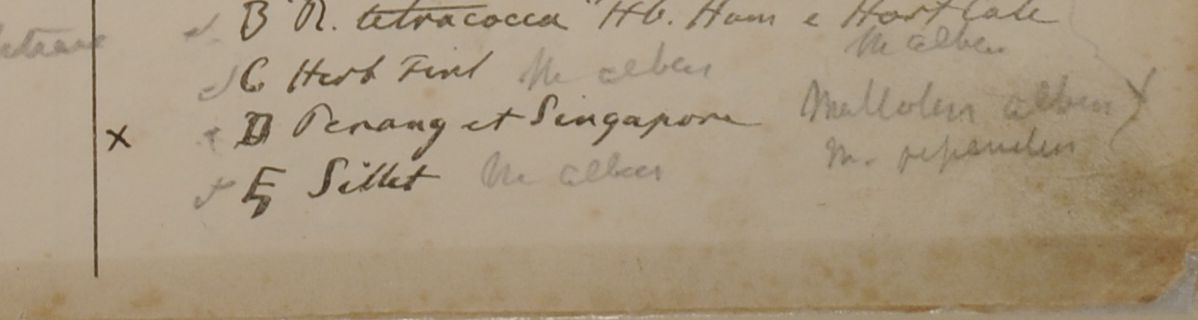 B "R. tetracocca" Hb. Ham e Hort Calc
M albus
C Herb Finl M albus
x D Penang et Singapore Mallotus albus
M.
E Sillet M albus